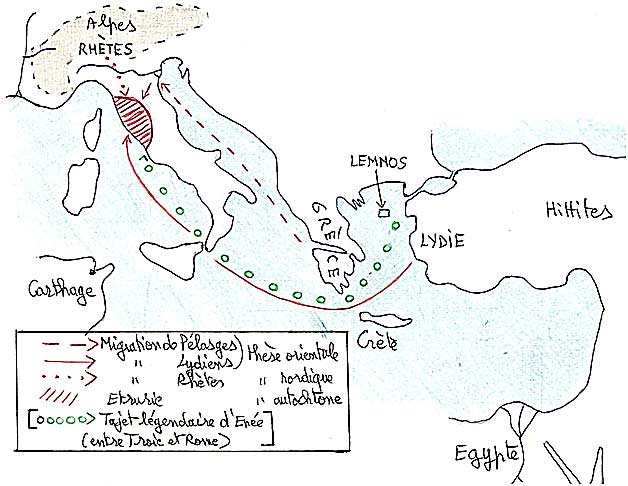 Alpes
RHETES
LEMNOS
Hittites
GRÈCE
LYDIE
Carthage
Crète
Migration des Pélasges
" Lydiens
thèse orientale
" Rhètes " nordique
Etrurie " autochtone
Tajet légendaire d'Enée
(entre Troie et Rome)
Egypte